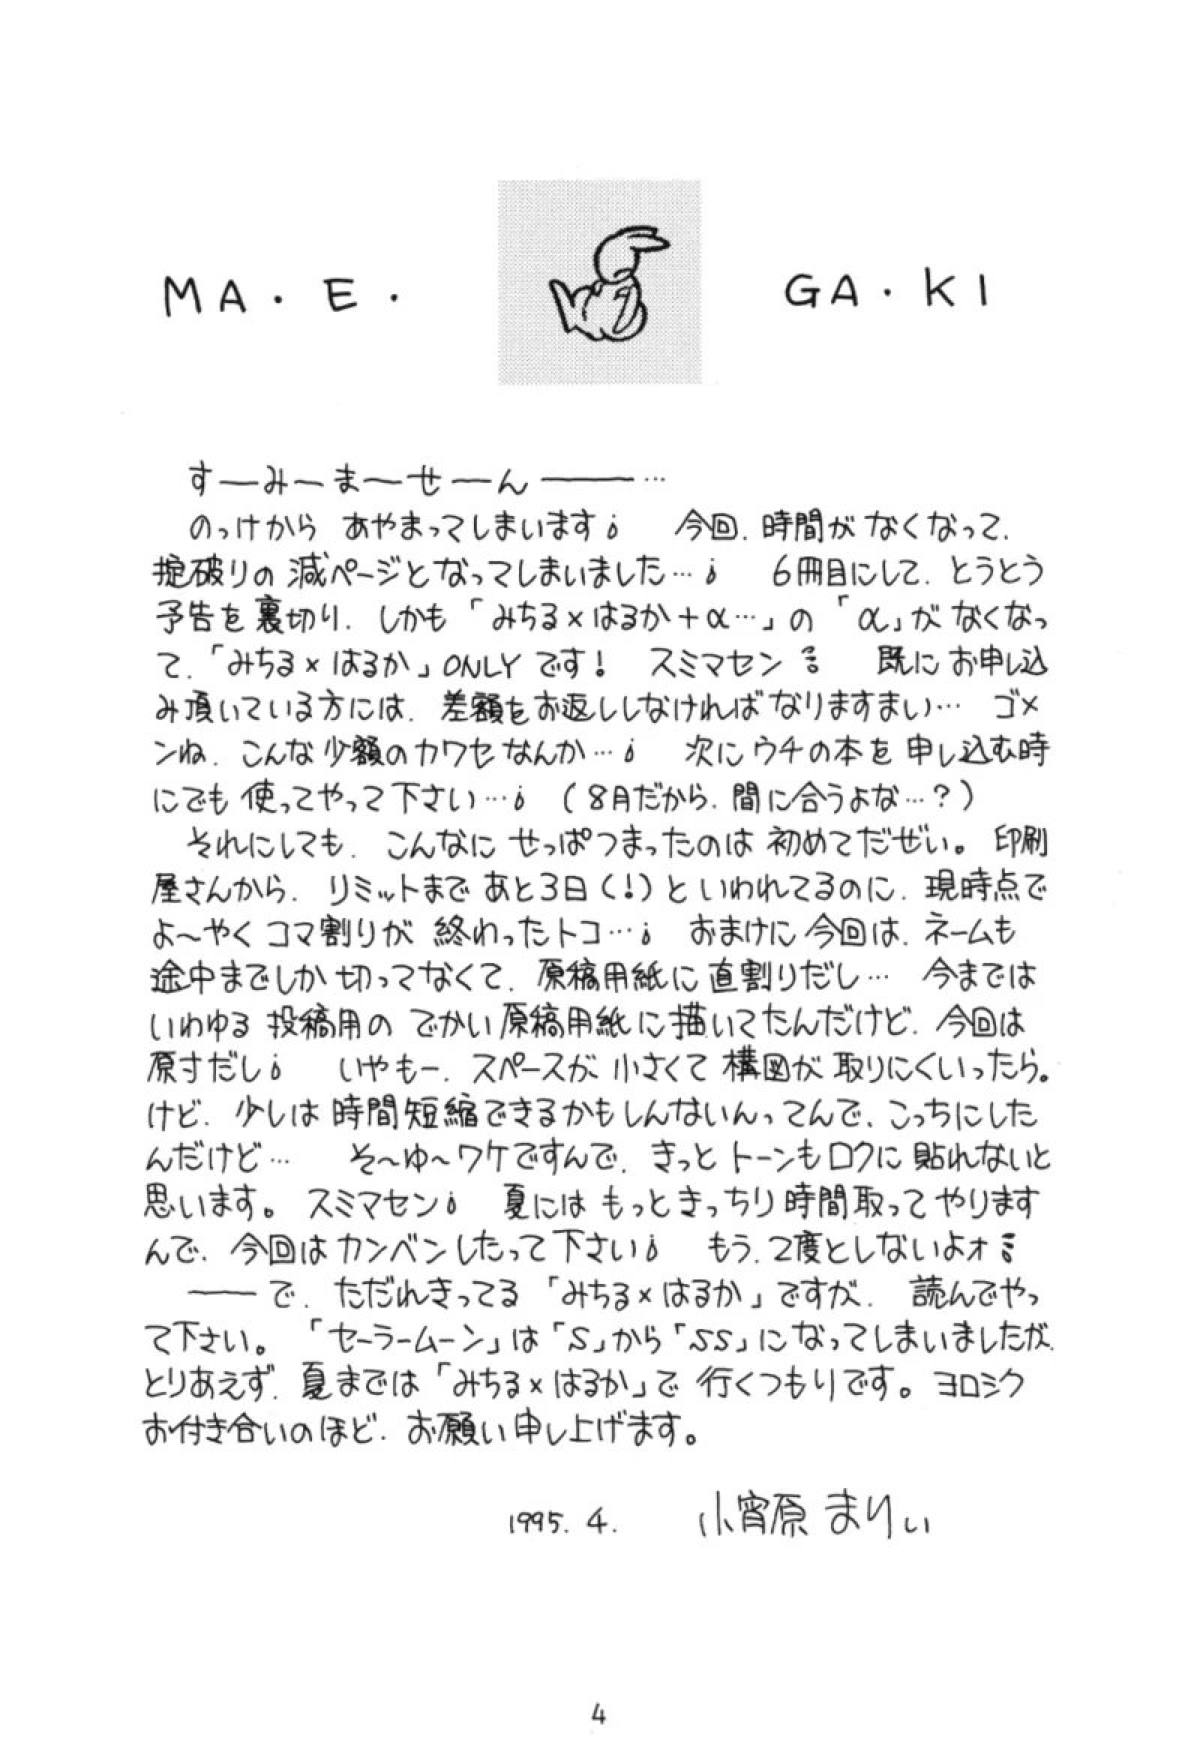 MA・E・ GA・KI
す—み〜ま〜せ—ん———…
のっけから あやまってしまいます💧 今回、時間が なくなって、
掟破りの 減ページとなってしまいました…💧 6冊目にして、とうとう
予告を 裏切り、しかも「みちる×はるか+α…」の「α」が なくなっ
て、「みちる×はるか」ONLYです! スミマセン💦 既に お申し込
み頂いている方には、差額をお返ししなければなりますまい… ゴメ
ンね、こんな 少額のカワセなんか…💧 次に ウチの本を 申し込む時
にでも 使ってやって下さい…💧 (8月だから、間に合うよな…?)
それにしても、こんなに せっぱつまったのは 初めてだぜい。印刷
屋さんから、リミットまで あと3日(!)と いわれてるのに、現時点で
よ〜やく コマ割りが 終わったトコ…💧 おまけに 今回は、ネームも
途中までしか 切ってなくて、原稿用紙に 直割りだし… 今までは
いわゆる 投稿用の でかい 原稿用紙に 描いてたんだけど、今回は
原寸だし💧 いやもー、スペースが 小さくて 構図が 取りにくいったら。
けど、少しは 時間短縮できるかもしんないんってんで、こっちにした
んだけど… そ〜ゆ〜ワケですんで、きっと トーンもロクに 貼れないと
思います。スミマセン💧 夏には もっときっちり 時間取って やります
んで、今回は カンベンしたって 下さい💧 もう、2度としないよォ💦
——で、ただれきってる「みちる×はるか」ですが、読んでやっ
て下さい。「セーラームーン」は「S」から「SS」になってしまいましたが、
とりあえず、夏までは「みちる×はるか」で 行くつもりです。ヨロシク
お付き合いのほど、お願い申し上げます。
1995. 4. 小宵原 まりぃ
4